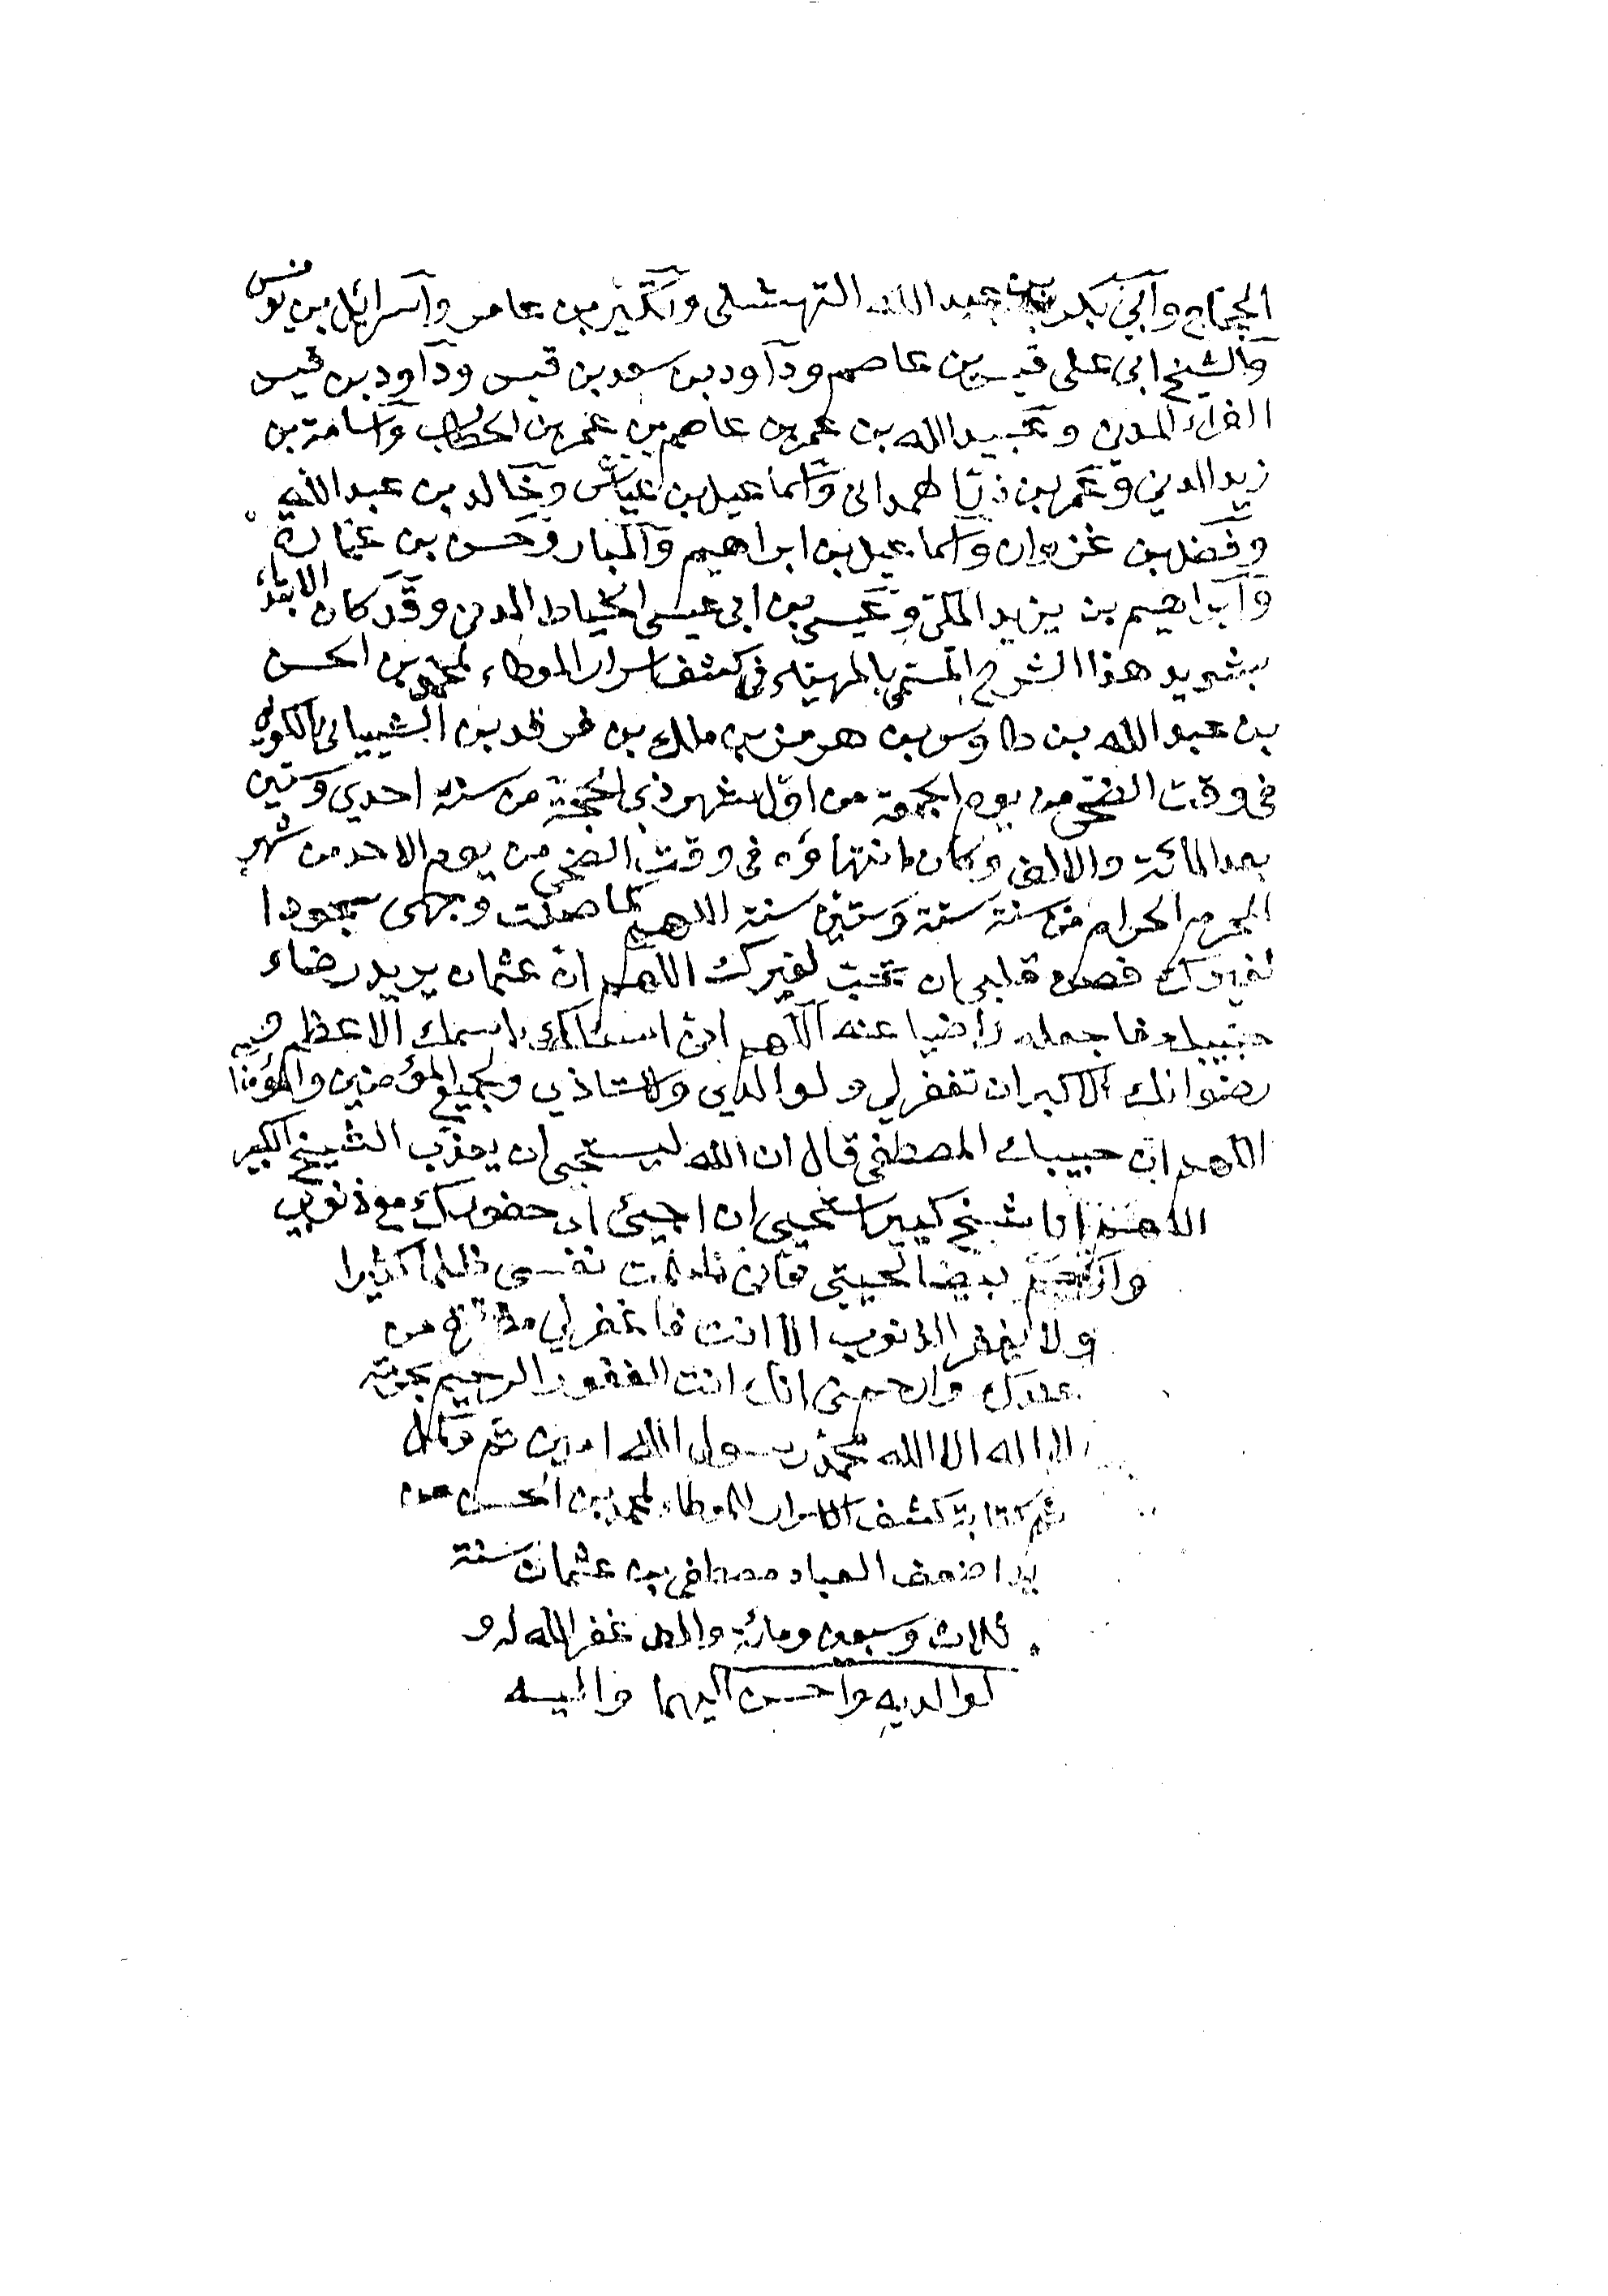 الحجاج وابي بكر بن عبد الله النهشلي وبكير بن عامر واسرائيل بن يونس
والشيخ ابي علي قيس بن عاصم وداود بن سعد بن قيس وداود بن قيس
الفراء المدني وعبيد الله بن عمر بن عاصم بن عمر بن الخطاب واسامة بن
زيد المدني وعمر بن ذر الهمداني واسماعيل بن عياش وخالد بن عبد الله
وفضل بن غزوان واسماعيل بن ابراهيم والمبارك وحسن بن عمارة
وابراهيم بن يزيد المكي وعيسى بن ابي عيسى الخياط المدني وقد كان الابتداء
بتسويد هذا الشرح المسمى بالمهيأ في كشف اسرار الموطاء لمحمد بن الحسن
بن عبد الله بن طاوس بن هرمز بن ملك بن فرقد بن الشيباني الكوفي
في وقت الضحى من يوم الجمعة من اول شهر ذي الحجة من سنة احدى وستين
بعد المائة والالف وكان انتهاؤه في وقت الضحى من يوم الاحد من شهر
المحرم الحرام من سنة ستة وستين سنة اللهم كما صنت وجهي سجودا
لغيرك فصن قلبي ان يحب لغيرك اللهم ان عثمان يريد رضاء
حبيبك فاجعله راضيا عنه اللهم اني اسئلك باسمك الاعظم و
رضوانك الاكبر ان تغفر لي ولوالدي ولاستاذي ولجميع المؤمنين والمؤمنا
اللهم ان حبيبك المصطفى قال ان الله ليستحيي ان يعذب الشيخ الكبير
اللهم انا شيخ كبير استحيي ان اجيئ الى حضورك مع ذنوبي
وارحم بيضا لحيتي فاني ظلمت نفسي ظلما كثيرا
ولا يغفر الذنوب الا انت فاغفر لي مغفرة من
عندك وارحمني انك انت الغفور الرحيم بحرمة
لا اله الا الله محمد رسول الله امين ثم
تم كتابة كشف الاسرار الموطاء لمحمد بن الحسن من
يد اضعف العباد مصطفى بن عثمان سنة
ثلاث وسبعين ومائة والف غفر الله له و
لوالديه واحسن اليهما واليه